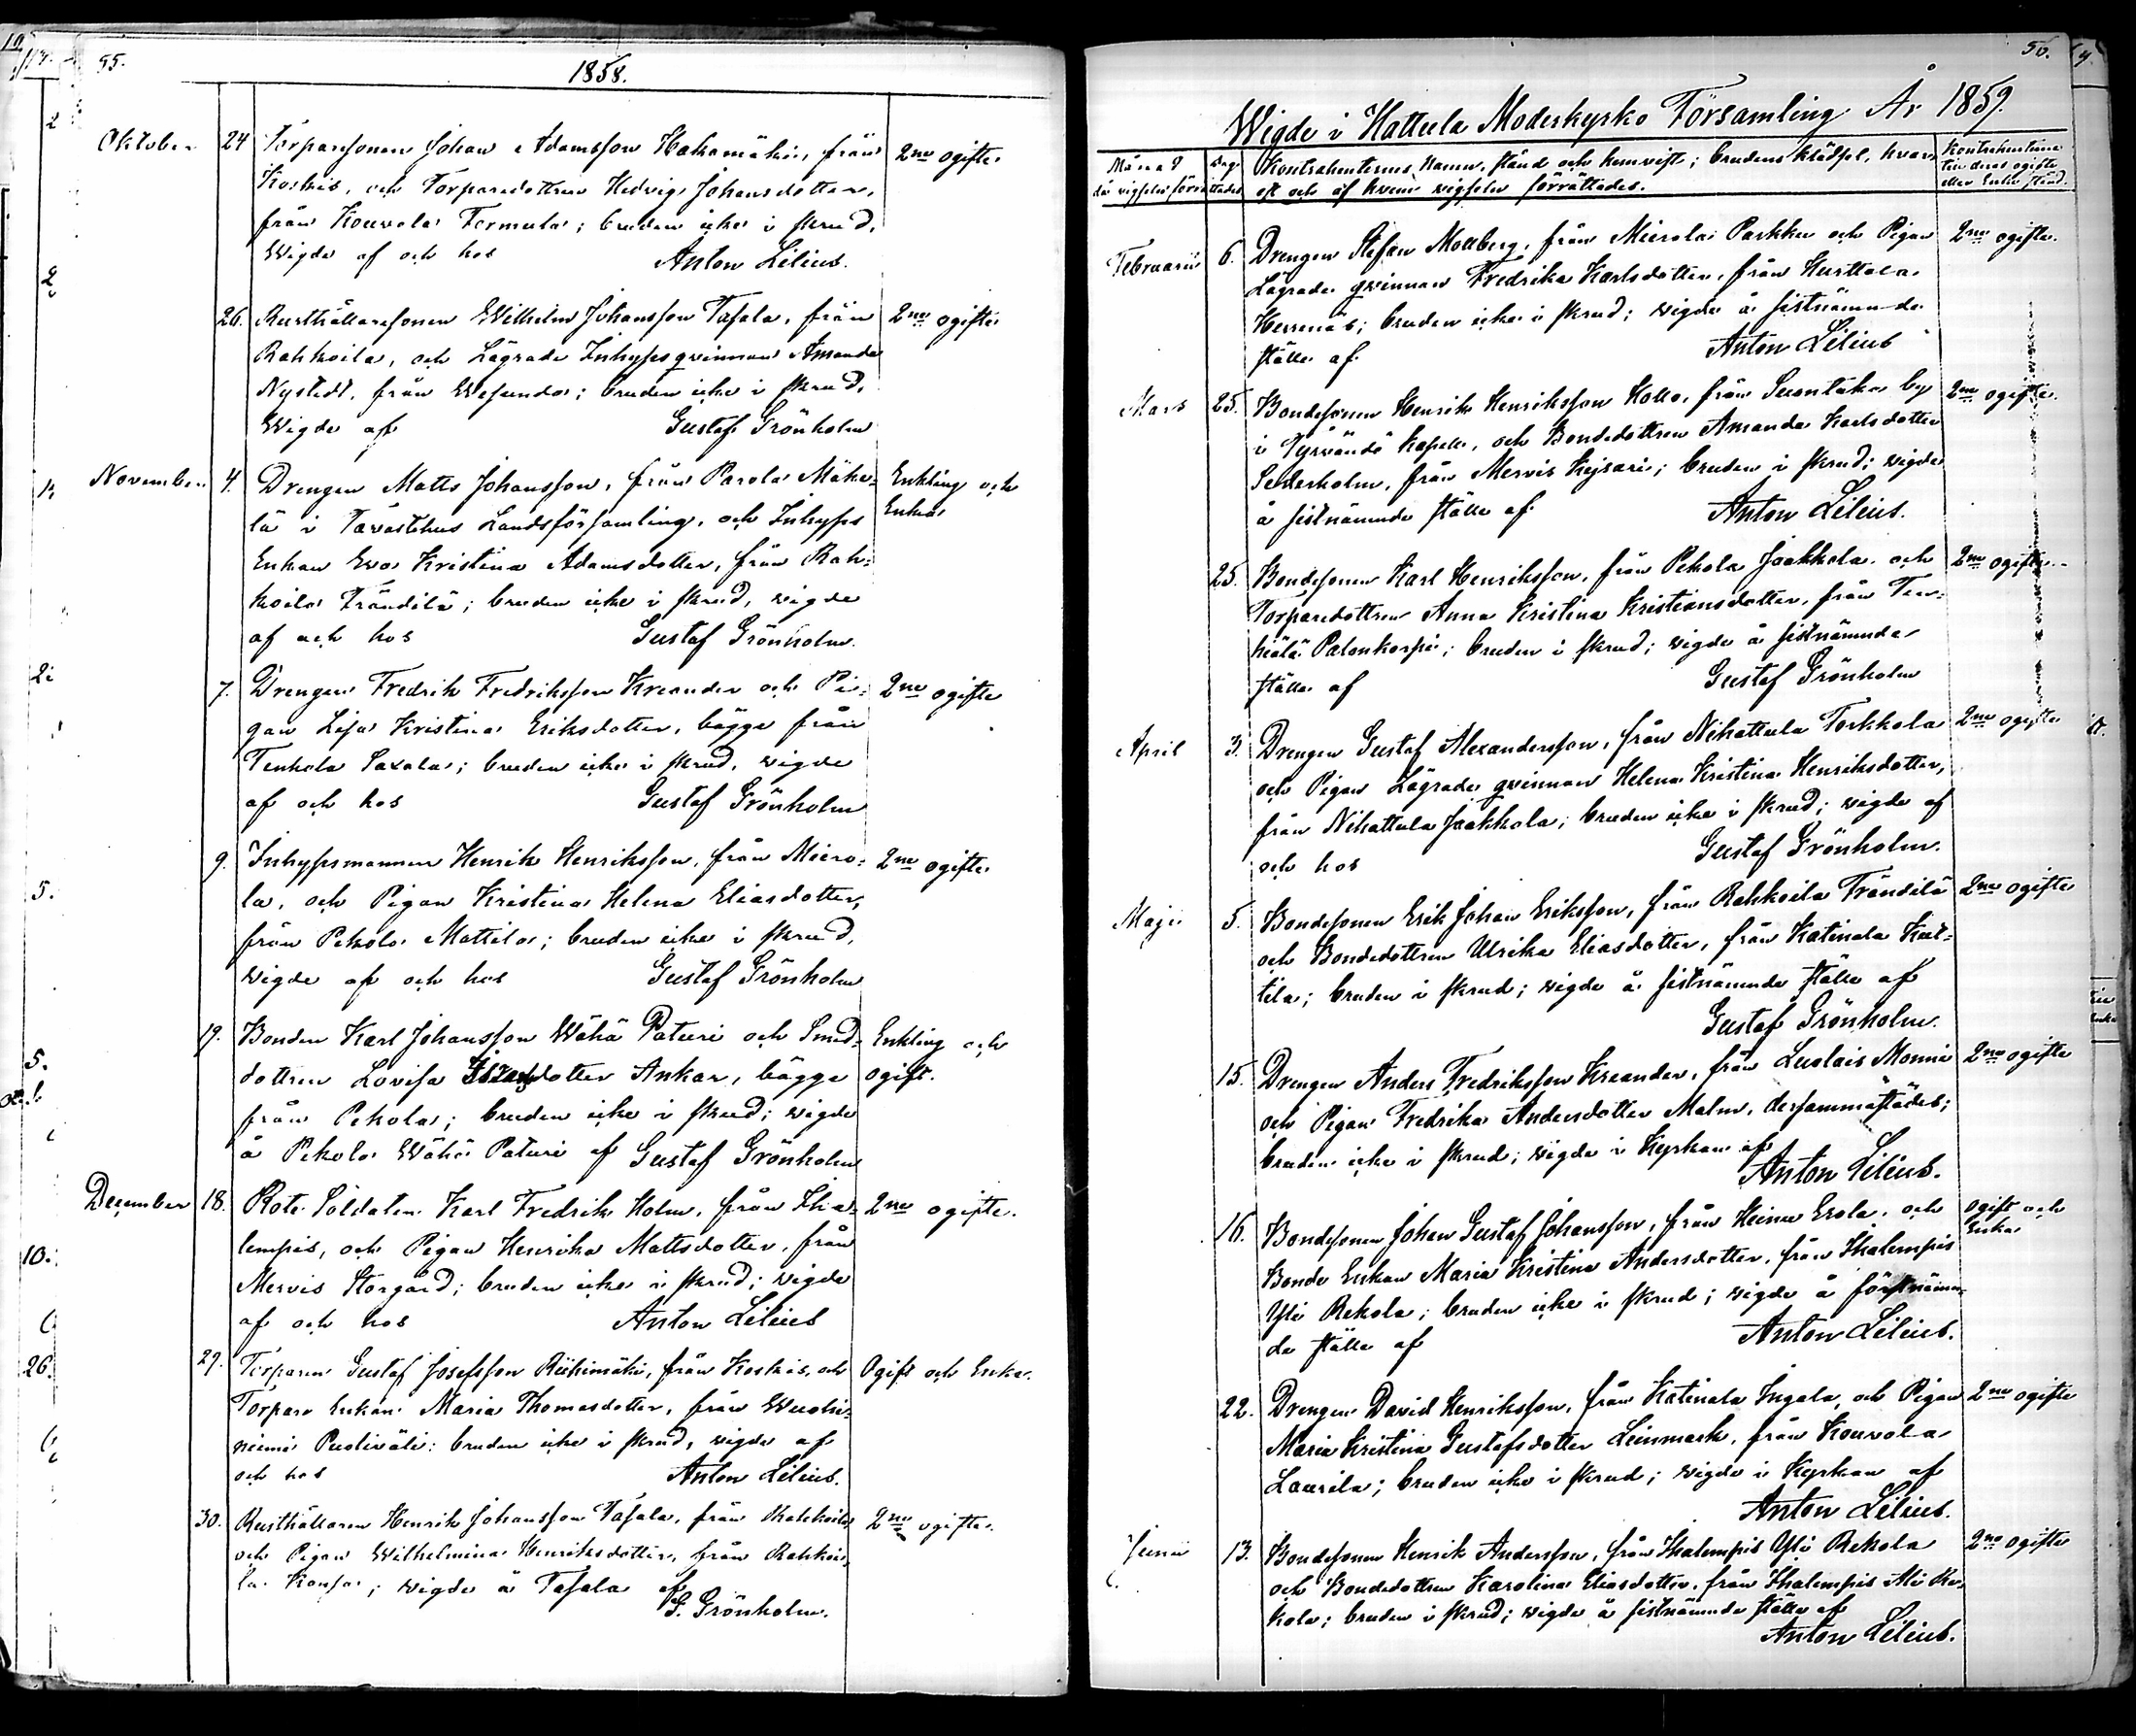 55.
1858.
Oktober 24 Torparesonen Johan Adamsson Hakamäki, från 2ne ogifte
Koskis, och Torparedottren Hedvig Johansdotter,
från Kouvola Formula; bruden icke i skrud,
Wigde af och hos Anton Lilius.
26. Rusthållaresonen Wilhelm Johansson Tafala, från 2ne ogifte
Rahkoila, och Lägrade Inhyses qvinnan Amanda
Nystedt, från Wesunda; bruden icke i skrud,
Wigde af Gustaf Grönholm
November 4. Drengen Matts Johansson, från Parola Mäke- Enkling och
lä i Tavastehus Landsförsamling, och Inhyses Enka
Enkan Eva Kristina Adamsdotter, från Rah-
koila Frändilä; bruden icke i skrud, wigde
af och hos Gustaf Grönholm.
7. Drengen Fredrik Fredriksson Kreander och Pi- 2ne ogifte
gan Lisa Kristina Eriksdotter, bägge från
Tenhola Saxala; bruden icke i skrud, wigde
af och hos Gustaf Grönholm
9. Inhysesmannen Henrik Henriksson, från Miero- 2ne ogifte
la, och Pigan Kristina Helena Eliasdotter,
från Pekola Mattila; bruden icke i skrud,
wigde af och hos Gustaf Grönholm
19. Bonden Karl Johansson Wähä Paturi och Smed- Enkling och
dottren Lovisa dotter Ankar, bägge ogift.
från Pekola; bruden icke i skrud; wigde
å Pekola Wähä Paturi af Gustaf Grönholm
December 18. Rote Soldaten Karl Fredrik Holm, från Iha- 2ne ogifte.
lempis, och Pigan Henrika Mattsdotter, från
Mervis Storgård; bruden icke i skrud; wigde
af och hos Anton Lilius
29. Torparen Gustaf Josefsson Riihimäki, från Koskis, och Ogift och Enka.
Torpare Enkan Maria Thomasdotter, från Wuohi-
niemi Puoliväli: bruden icke i skrud, wigde af
och hos Anton Lilius.
30. Rusthållaren Henrik Johansson Tafala, från Rahkoila, 2ne ogifte.
och Pigan Wilhelmina Henriksdotter, från Rahkoi-
la Konsa; wigde å Tafala af
G. Grönholm.
56.
Wigde i Hattula Moderkyrko Församling År 1859.
Månad då wigseln förrättades Dag Kontrahenternes Namn, stånd och hemvist; brudens klädsel, hvar- Kontrahenterne
est och af hvem wigseln förrättades. till deras ogifte
eller Enke stånd.
Februarii 6. Drengen Stefan Mollberg, från Mierola Parkku och Pigan 2ne ogifte.
Lägrade qvinnan Fredrika Karlsdotter, från Hurttala
Herrenäs; bruden icke i skrud; wigde å sistnämnde
ställe af Anton Lilius
Mars 25. Bondesonen Henrik Henriksson Hollo, från Suontaka by 2ne ogifte.
i Tyrvändö Kapell, och Bondedottren Amanda Karlsdotter
Sederholm, från Mervis Kejsari; bruden i skrud; wigde
å sistnämnde ställe af Anton Lilius.
25. Bondesonen Karl Henriksson, från Pekola Jaakkola och 2ne ogifte.
Torparedottren Anna Kristina Kristiansdotter, från Ten-
hiälä Palonkorpi; bruden i skrud; wigde å sistnämnda
ställe af Gustaf Grönholm
April 3. Drengen Gustaf Alexandersson, från Nihattula Torkkola 2ne ogifte
och Pigan Lägrade qvinnan Helena Kristina Henriksdotter,
från Nihattula Jaakkola; bruden icke i skrud; wigde af
och hos Gustaf Grönholm.
Maji 5. Bondesonen Erik Johan Eriksson, från Rahkoila Frändilä 2ne ogifte
och Bondedottren Ulrika Eliasdotter, från Katinala Kut-
tila; bruden i skrud; wigde å sistnämnde ställe af
Gustaf Grönholm.
15. Drengen Anders Fredriksson Kreander, från Luolais Monni 2ne ogifte
och Pigan Fredrika Andersdotter Malm, dersammastädes;
bruden icke i skrud; wigde i Kyrkan af
Anton Lilius.
16. Bondesonen Johan Gustaf Johansson, från Heinu Erola, och ogift och
Bonde Enkan Maria Kristina Andersdotter, från Ihalempis Enka
Yli Rekola; bruden icke i skrud; wigde å förstnämn-
da ställe af Anton Lilius.
22. Drengen David Henriksson, från Katinala Ingala, och Pigan 2ne ogifte
Maria Kristina Gustafsdotter Leinmark, från Kouvola
Laurila; bruden icke i skrud; wigde i Kyrkan af
Anton Lilius.
Junii 13. Bondesonen Henrik Andersson, från Ihalempis Yli Rekola 2ne ogifte
och Bondedottren Karolina Eliasdotter, från Ihalempis Ali Re-
kola; bruden i skrud; wigde å sistnämnde ställe af
Anton Lilius.